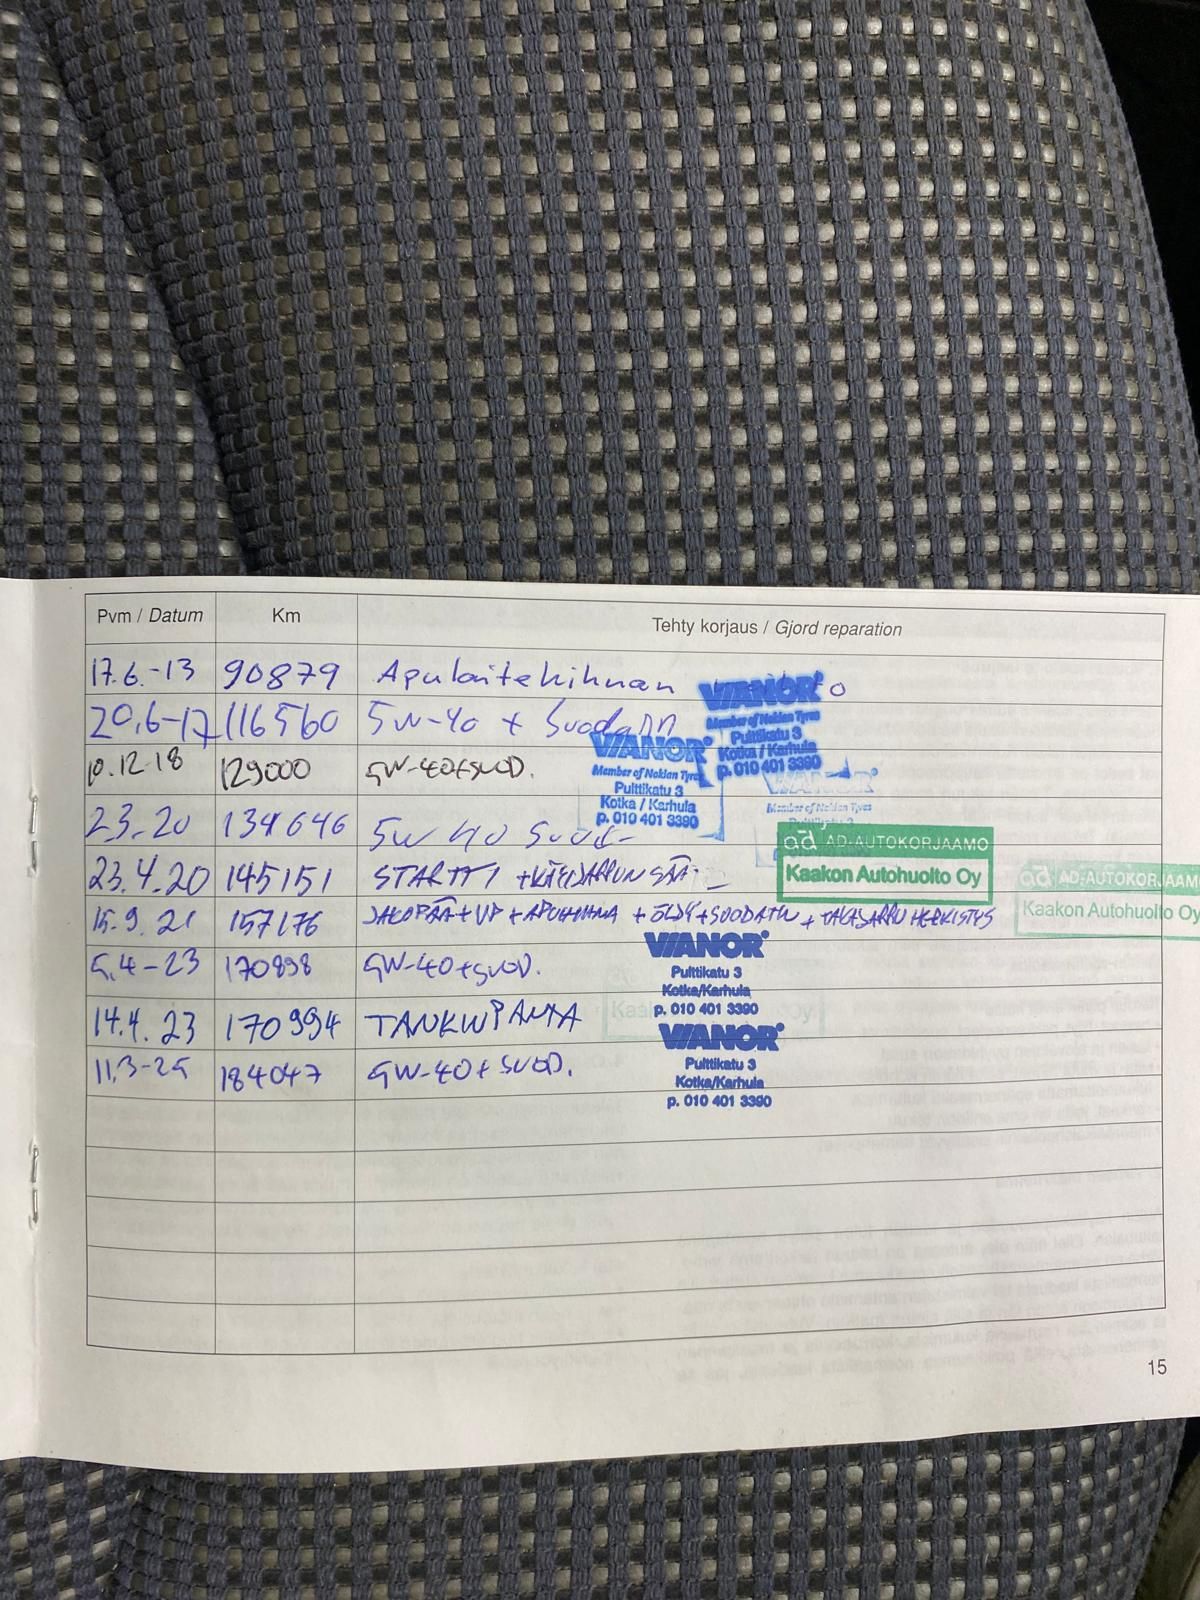 Pvm / Datum Km Tehty korjaus / Gjord reparation
17.6.-13 90879 Apulaitehihnan
VIANOR
Member of Nokian Tyres
Pulttikatu 3
Kotka / Karhula
p. 010 401 3390
20.6-17 116560 5W-40 + Suodatin
VIANOR
Member of Nokian Tyres
Pulttikatu 3
Kotka / Karhula
p. 010 401 3390
10.12-18 129000 5W-40+SUOD.
VIANOR
Member of Nokian Tyres
Pulttikatu 3
23.20 134646 5W 40 Suod-
ad AD-AUTOKORJAAMO
Kaakon Autohuolto Oy
23.4.20 145151 STARTTI + KÄSIJARRUN SÄÄ.
ad AD-AUTOKORJAAM
Kaakon Autohuolto Oy
15.9.21 157176 JAKOPÄÄ+VP+APUHIHNA + ÖLJY+SUODATIN + TAKAJARRU HERKISTYS
5.4-23 170898 5W-40+SUOD.
VIANOR
Pulttikatu 3
Kotka/Karhula
p. 010 401 3390
Kaakon Oy
14.4.23 170994 TANKINPANTA
11.3-25 184047 5W-40+SUOD.
VIANOR
Pulttikatu 3
Kotka/Karhula
p. 010 401 3390
15